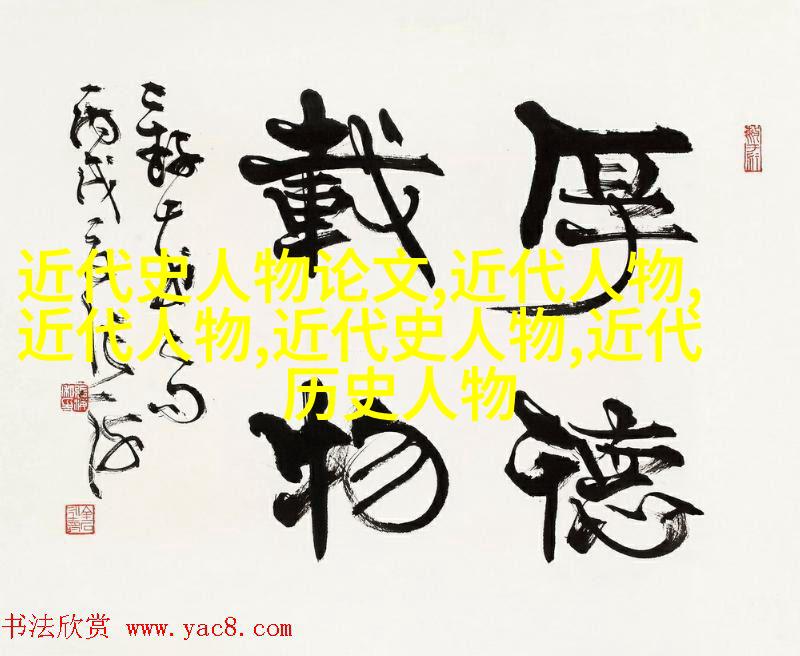 厚德
載物
丙戌
近代史人物论文,近代人物,
近代人物,近代史人物,近代
历史人物
书法欣赏 www.yac8.com